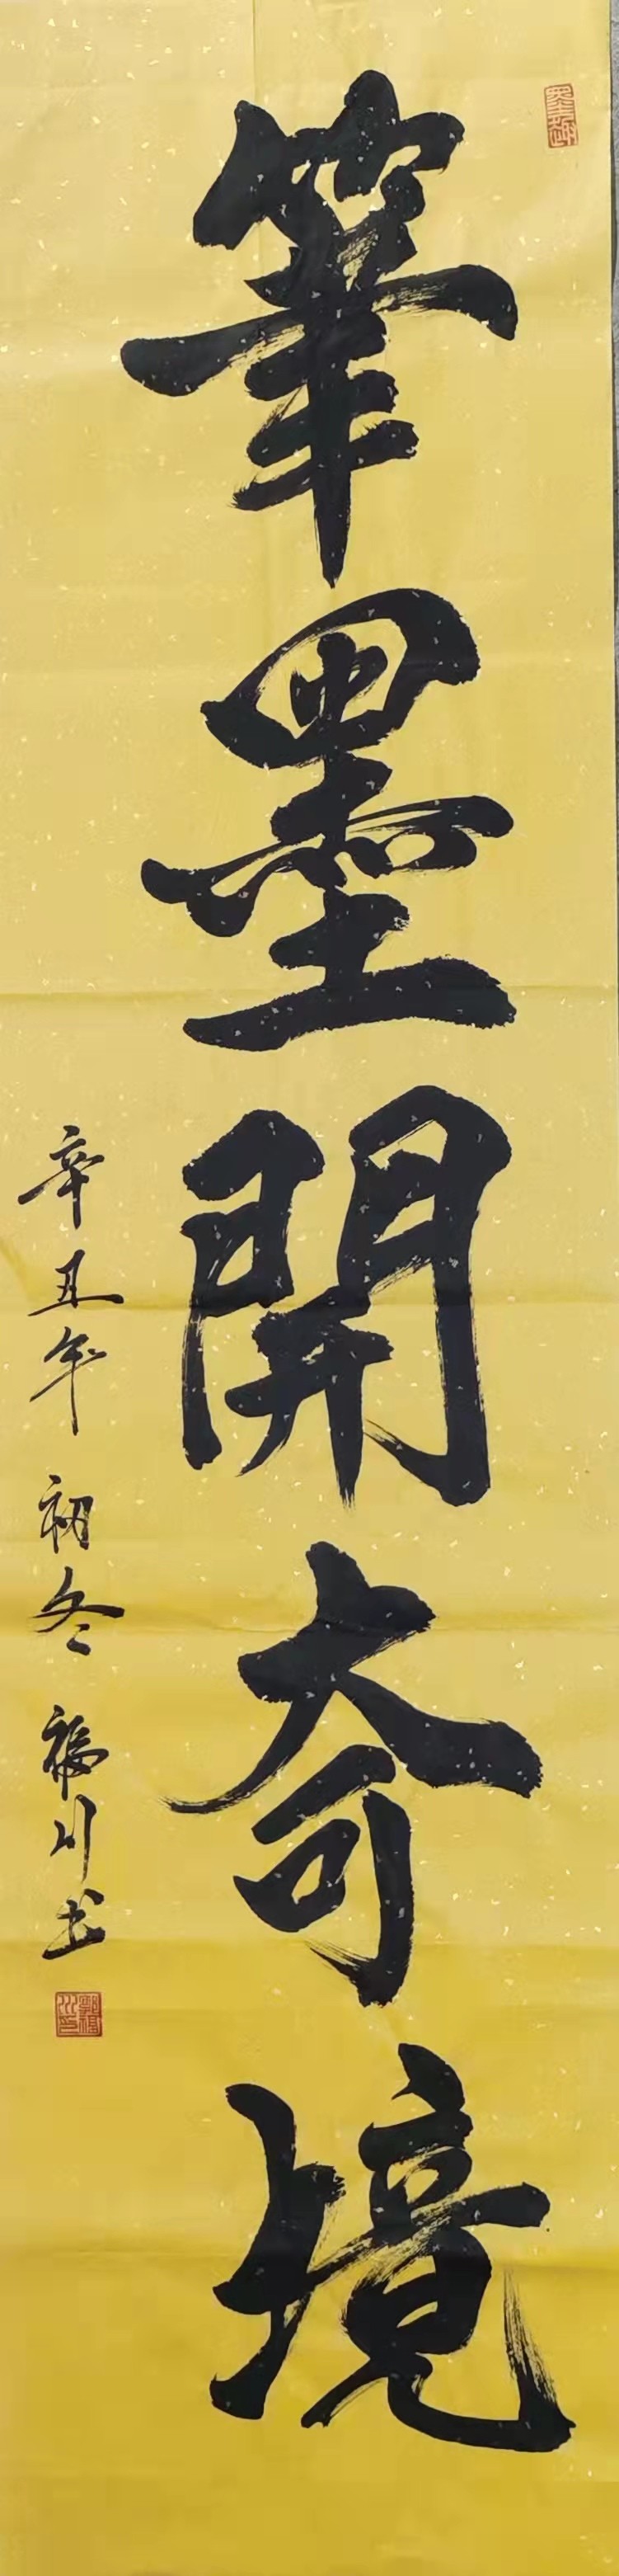 筆墨開奇境
辛丑年初冬福川书